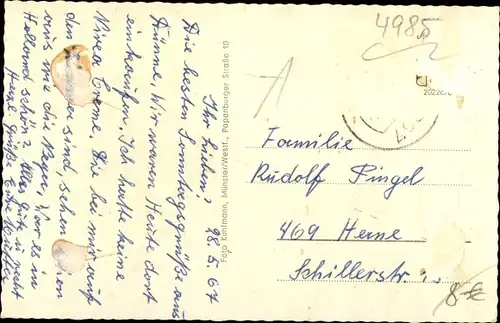 Ihr Lieben! 28.5.67
Die besten Sonntagsgrüße aus
Dümme. Wir waren Heute dort
einkaufen. Ich hatte keine
Nivea Creme. Die bei mir auf
den sind, sehen
aus wie die Neger. War es in
Holland schön? Alles Gute u. recht
Herzl. Grüße Eure
Foto Kuhlmann, Münster/Westf., Papenburger Straße 10
4985
Familie
Rudolf Pingel
469 Herne
Schillerstr.
8€